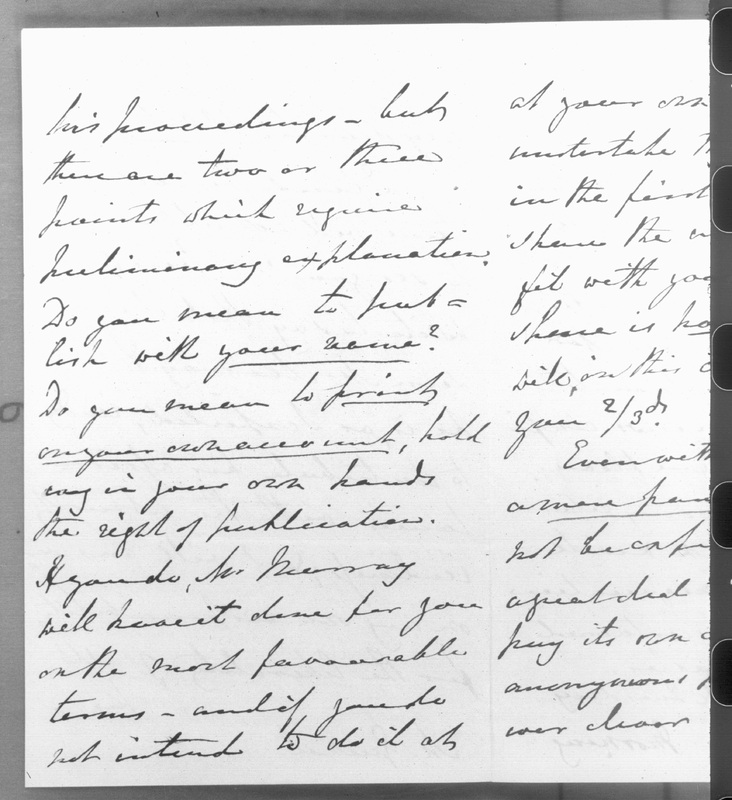 his proceedings – but
there are two or three
points which require
preliminary explanation.
Do you mean to pub=
lish with your name?
Do you mean to print
on your own account, hold
ing in your own hands
the right of publication.
If you do, Mr Murray
will have it done for you
on the most favourable
terms – and if you do
not intend to do it at
at your own
undertake
in the first
share the
fit with you
share is
will, on this
you 2/3ds.
Even with
a mere pam
not be
a great deal
pay its own
anonymous
ever clever